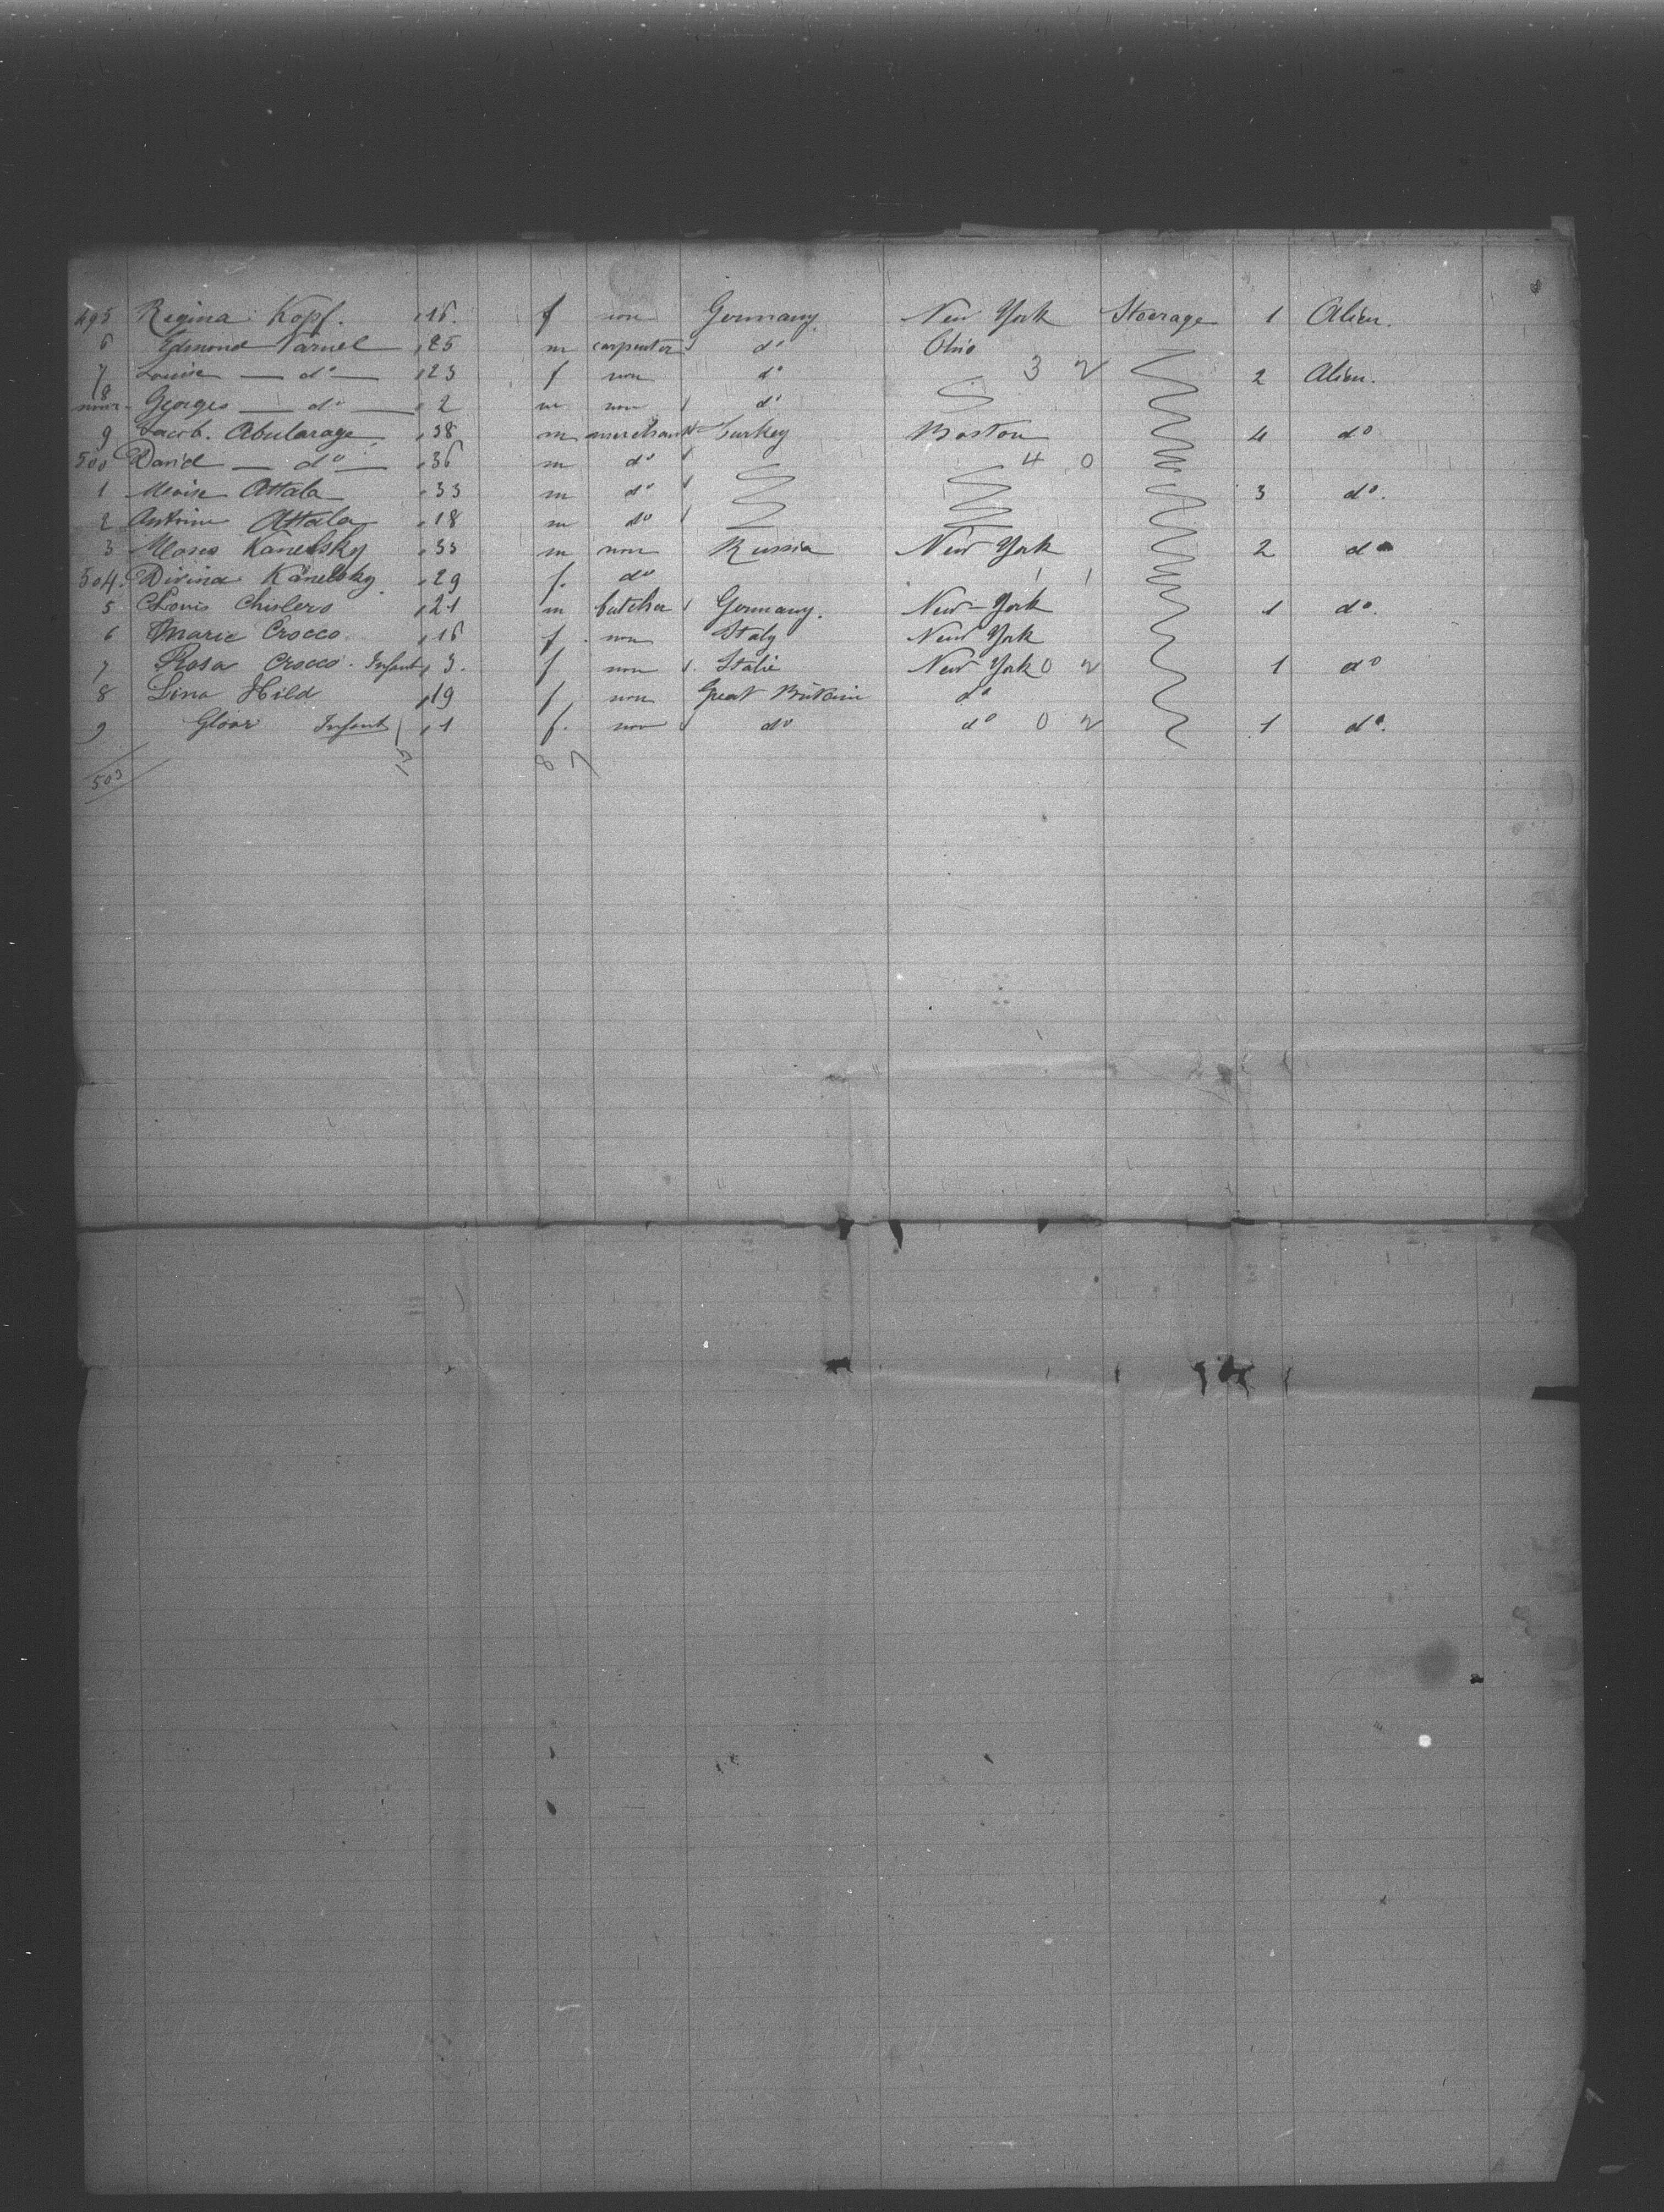 495 Regina Kopf. 16. f non Germany. New York Steerage 1 Alien.
6 Edmond 25 m carpenter do Ohio
7 Louise — do — 23 f non do 3 2 2 Alien.
8 Georges — do — 2 m non do
9 Jacob. Abularage 38 m merchant Turkey Boston 4 do
500 David — do — 36 m do 4 0
1 Moise Attala 33 m do 3 do.
2 Antoine Attala 18 m do
3 Moses Kanelsky 33 m non Russia New York 2 do
504. Divina Kanelsky. 29 f. do 1 1
5 Louis Chislero 21 m butcher Germany. New-York 1 do.
6 Marie Crocco. 16 f. non Italy New York
7 Rosa Crocco. Infant 3. f non Italie New York 0 2 1 do
8 Lina Hild 19 f non Great Britain do
9 Gloor Infant 1 f. non do do 0 2 1 do.
15 8 7
503